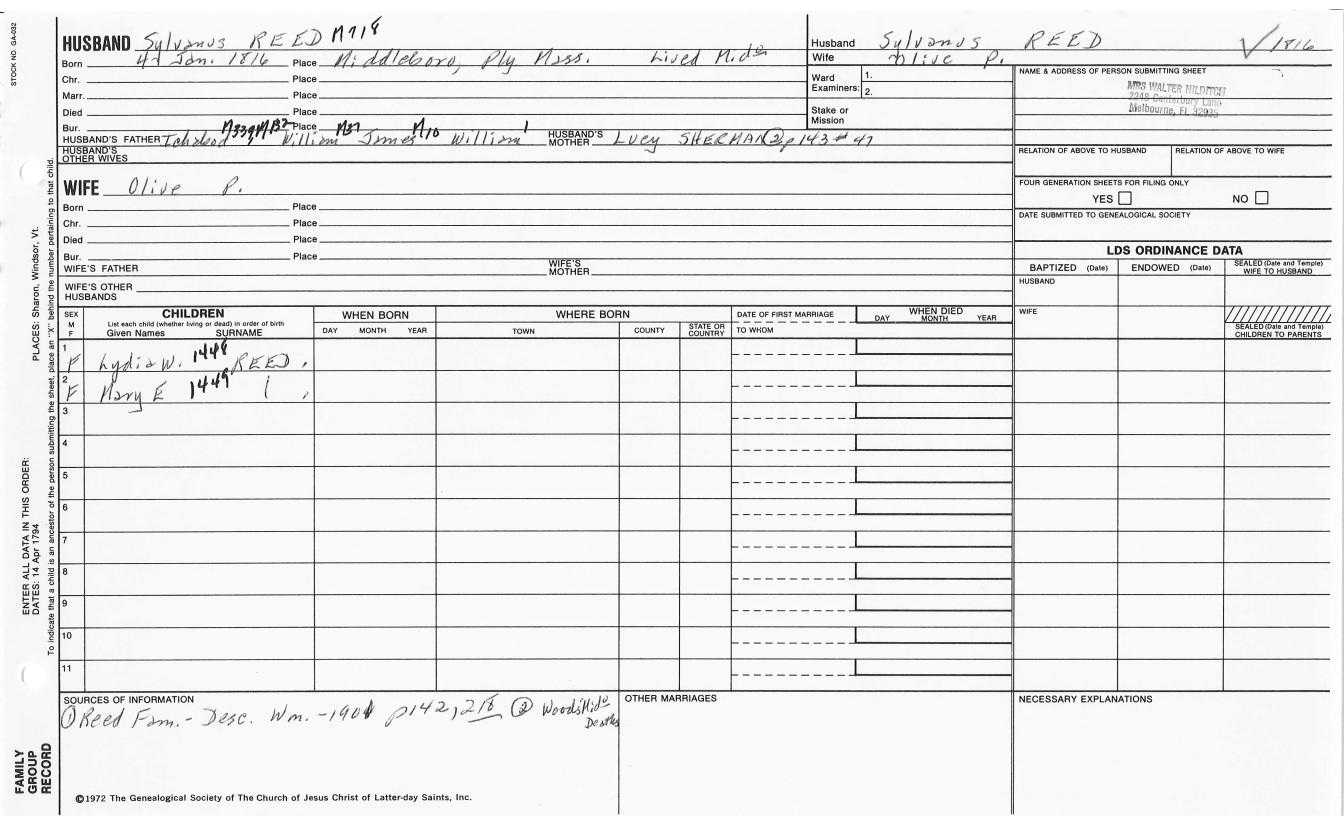 STOCK NO. GA-032
HUSBAND Sylvanus REED M718
Born 4 Jan. 1816 Place Middleboro, Ply Mass. Lived Mido
Chr. Place
Marr. Place
Died Place
Bur. Place
HUSBAND'S FATHER Ichabod M339 M132 William M37 James M10 William 1 HUSBAND'S MOTHER Lucy SHERMAN ② p143 # 47
HUSBAND'S OTHER WIVES
WIFE Olive P.
Born Place
Chr. Place
Died Place
Bur. Place
WIFE'S FATHER WIFE'S MOTHER
WIFE'S OTHER HUSBANDS
Husband Sylvanus REED √ 1816
Wife Olive P.
Ward Examiners: 1.
2.
Stake or Mission
NAME & ADDRESS OF PERSON SUBMITTING SHEET
MRS WALTER HILDITCH
2248 Canterbury Lane
Melbourne, FL 32935
RELATION OF ABOVE TO HUSBAND RELATION OF ABOVE TO WIFE
FOUR GENERATION SHEETS FOR FILING ONLY
YES NO
DATE SUBMITTED TO GENEALOGICAL SOCIETY
LDS ORDINANCE DATA
BAPTIZED (Date) ENDOWED (Date) SEALED (Date and Temple) WIFE TO HUSBAND
HUSBAND
WIFE
SEALED (Date and Temple) CHILDREN TO PARENTS
SEX M F CHILDREN
List each child (whether living or dead) in order of birth
Given Names SURNAME
WHEN BORN
DAY MONTH YEAR
WHERE BORN
TOWN COUNTY STATE OR COUNTRY
DATE OF FIRST MARRIAGE
TO WHOM
WHEN DIED
DAY MONTH YEAR
1 F Lydia W. 1448 REED
2 F Mary E 1449
3
4
5
6
7
8
9
10
11
SOURCES OF INFORMATION
① Reed Fam. - Desc. Wm. - 1901 p142, 218 ② Woods Mido Deaths
OTHER MARRIAGES
NECESSARY EXPLANATIONS
©1972 The Genealogical Society of The Church of Jesus Christ of Latter-day Saints, Inc.
FAMILY GROUP RECORD
ENTER ALL DATA IN THIS ORDER:
DATES: 14 Apr 1794
PLACES: Sharon, Windsor, Vt.
To indicate that a child is an ancestor of the person submitting the sheet, place an "X" behind the number pertaining to that child.